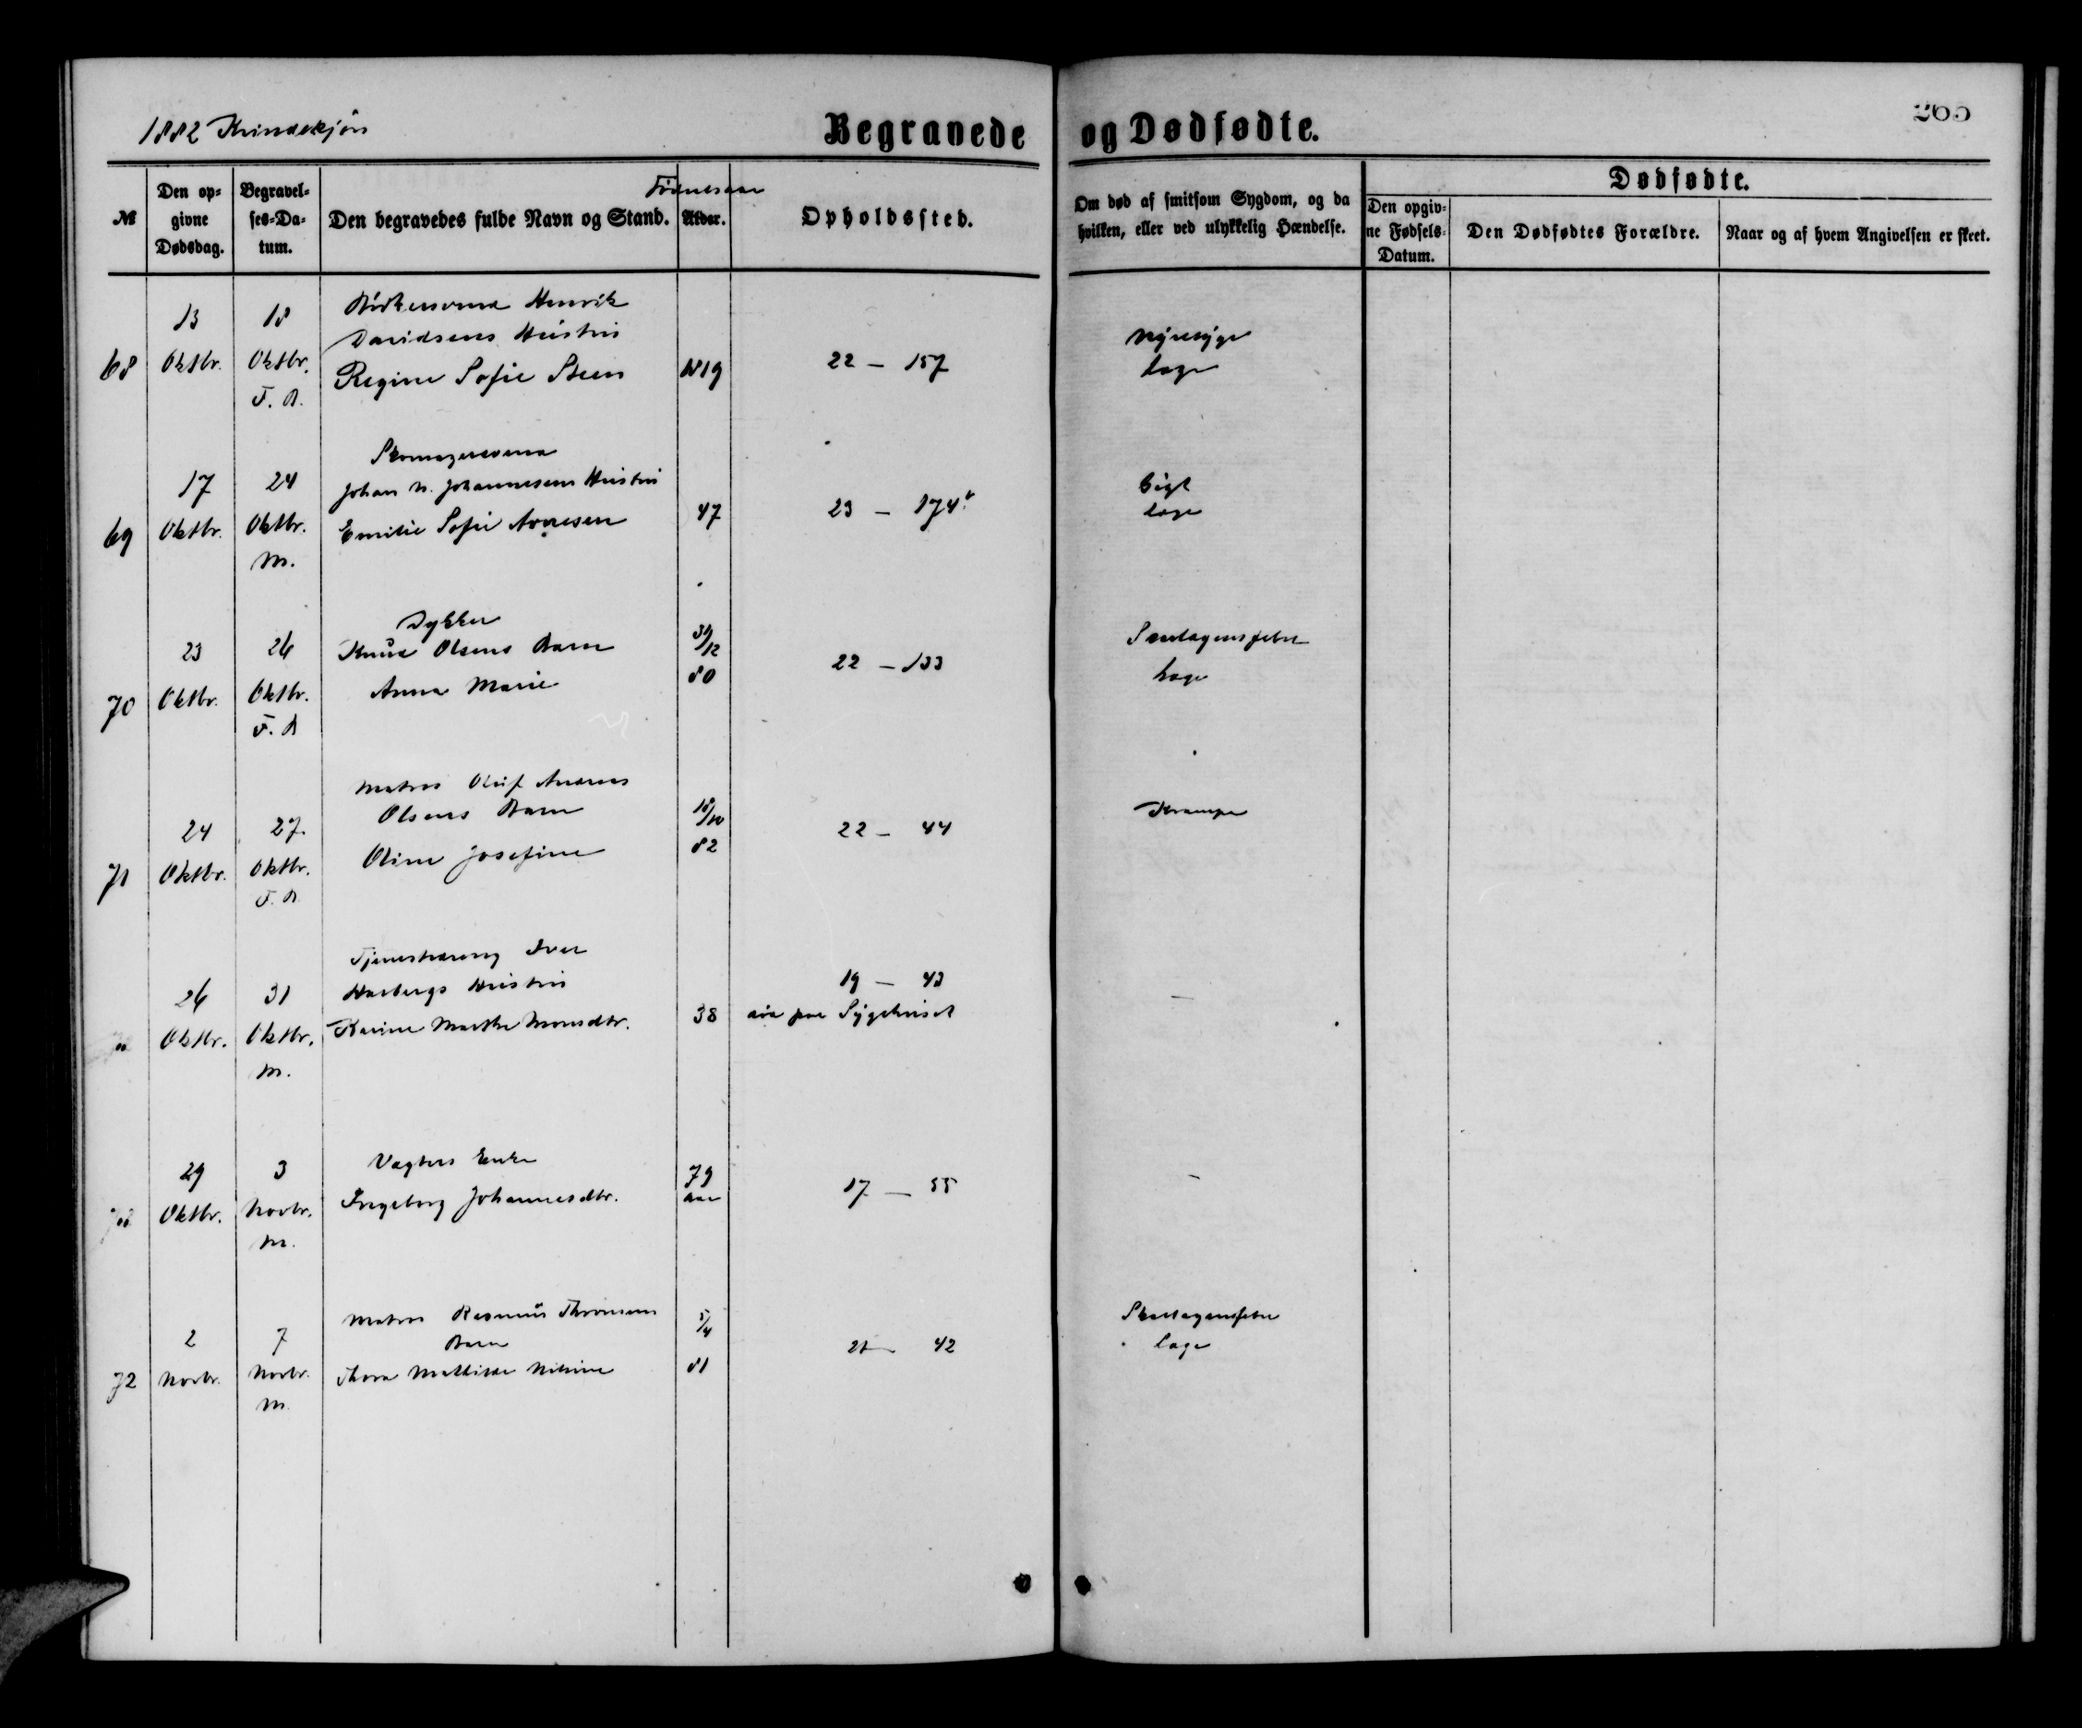 265
1882 Kvindekjøn
Begravede og Dødfødte.
№
Den opgivne Dødsdag.
Begravelses-Datum.
Den begravedes fulde Navn og Stand.
Fødselsaar
Alder.
Opholdssted.
Om død af smitsom Sygdom, og da hvilken, eller ved ulykkelig Hændelse.
Dødfødte.
Den opgivne Fødsels-Datum.
Den Dødfødtes Forældre.
Naar og af hvem Angivelsen er skeet.
68
13 Oktbr.
18 Oktbr. F. A.
Bødkersvend Henrik
Davidsens Hustru
Regine Sofie Steen
1819
22 — 157
Nyresyge
Læge
69
17 Oktbr.
24 Oktbr. M.
Skomagersvend
Johan N. Johannesens Hustru
Emilie Sofie
47
23 — 174
Gigt
Læge
70
23 Oktbr.
26 Oktbr. F. A
Dykker
Knud Olsens Barn
Anna Marie
/12 80
22 — 133
Skarlagensfeber
Læge
71
24 Oktbr.
27. Oktbr. F. A
Matros Oluf Andreas
Olsens Barn
Oline Josefine
18/10 82
22 — 44
Krampe
26 Oktbr.
31 Oktbr. M.
Iver
Hustru
Karine Marthe Monsdtr.
38
19 — 43
død paa Sygehuset
—
29 Oktbr.
3 Novbr. M.
Vægters Enke
Ingeborg Johannesdtr.
79 aar
17 — 55
—
72
2 Novbr.
7 Novbr. M
Matros Rasmus
Barn
Thora Mathilde
5/4 81
21 — 42
Skarlagensfeber
Læge